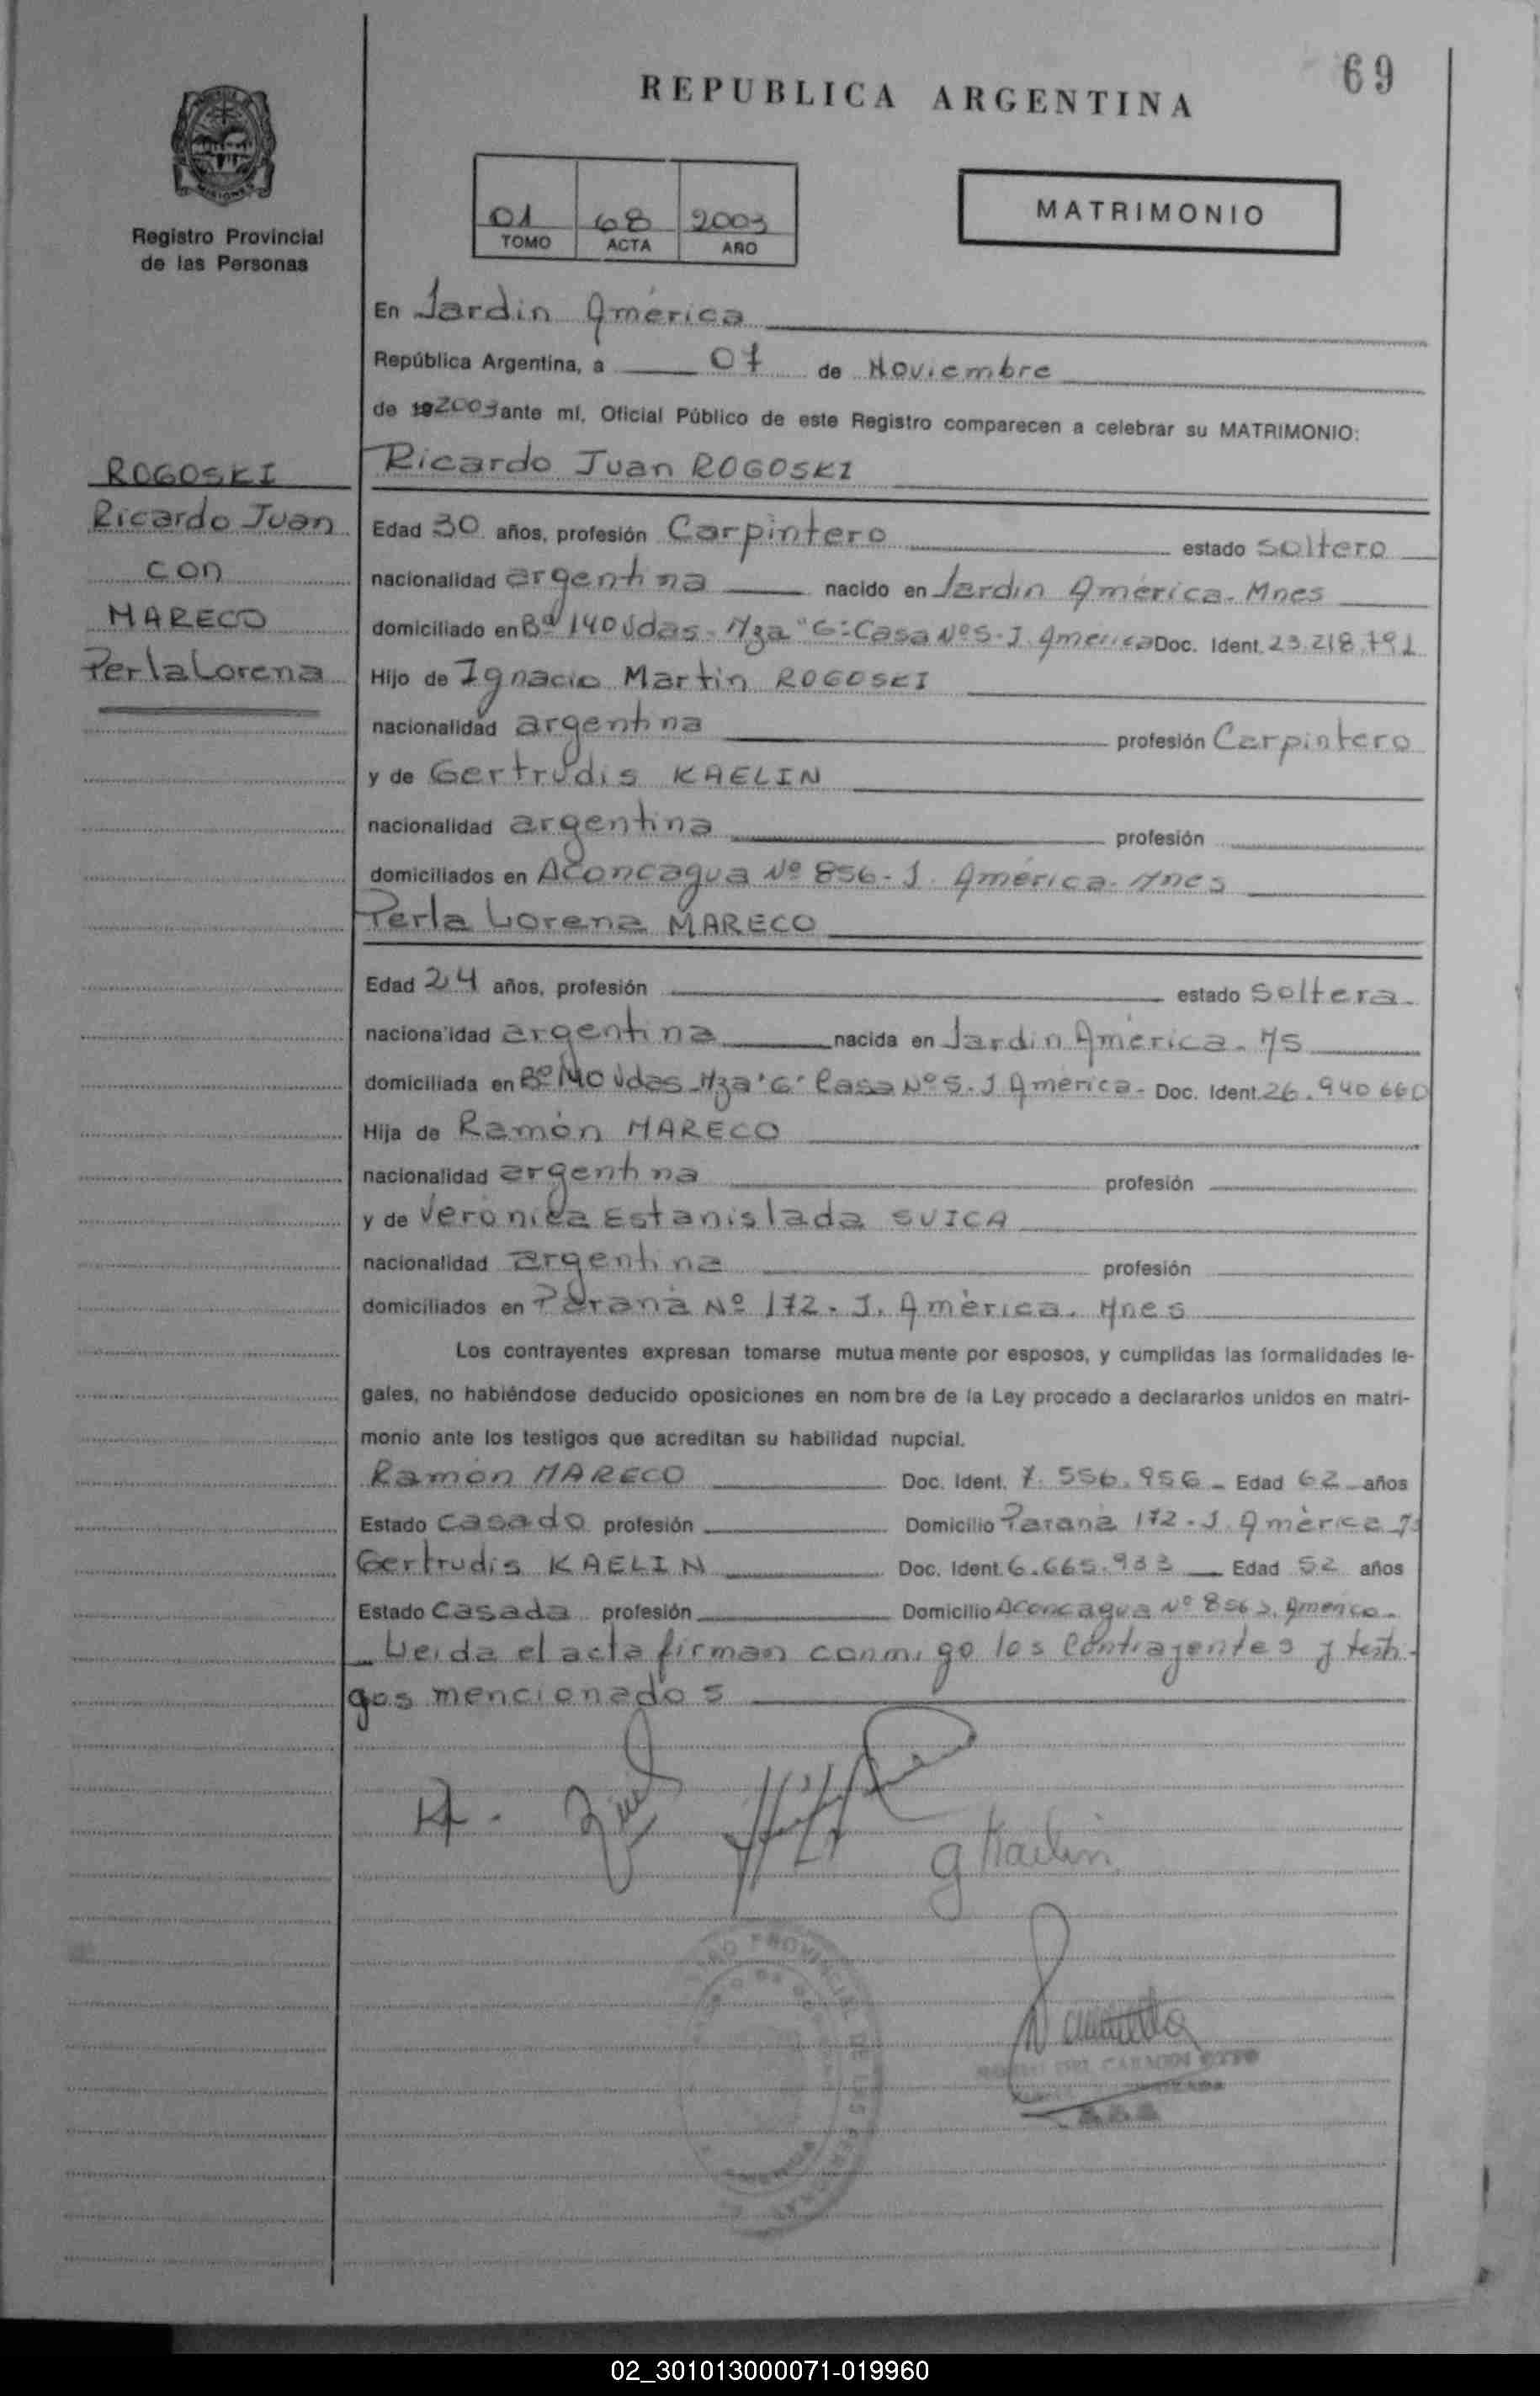 69
REPUBLICA ARGENTINA
MISIONES
Registro Provincial
de las Personas
01 68 2003
TOMO ACTA AÑO
MATRIMONIO
En Jardin América
República Argentina, a 07 de Noviembre
de 192003 ante mí, Oficial Público de este Registro comparecen a celebrar su MATRIMONIO:
ROGOSKI
Ricardo Juan
con
MARECO
Perla Lorena
Ricardo Juan ROGOSKI
Edad 30 años, profesión Carpintero estado soltero
nacionalidad argentina nacido en Jardin América. Mnes
domiciliado en Bº 140 Vdas. Mza "G" Casa Nº 5. J. America Doc. Ident. 23.218.791
Hijo de Ignacio Martin ROGOSKI
nacionalidad argentina profesión Carpintero
y de Gertrudis KAELIN
nacionalidad argentina profesión
domiciliados en Aconcagua Nº 856 - J. América. Mnes
Perla Lorena MARECO
Edad 24 años, profesión estado soltera.
nacionalidad argentina nacida en Jardin América. Ms
domiciliada en Bº 140 Vdas Mza "G" Casa Nº 5. J América - Doc. Ident. 26.940660
Hija de Ramón MARECO
nacionalidad argentina profesión
y de Verónica Estanislada SUICA
nacionalidad argentina profesión
domiciliados en Paraná Nº 172. J. América. Mnes
Los contrayentes expresan tomarse mutua mente por esposos, y cumplidas las formalidades le-
gales, no habiéndose deducido oposiciones en nom bre de la Ley procedo a declararlos unidos en matri-
monio ante los testigos que acreditan su habilidad nupcial.
Ramón MARECO Doc. Ident. 7.556.956 - Edad 62 años
Estado casado profesión Domicilio Paraná 172 - J. América
Gertrudis KAELIN Doc. Ident. 6.665.933 Edad 52 años
Estado Casada profesión Domicilio Aconcagua Nº 856 J. America.
Leida el acta firman conmigo los Contrayentes y testi-
gos mencionados
g Kaelin
02_301013000071-019960